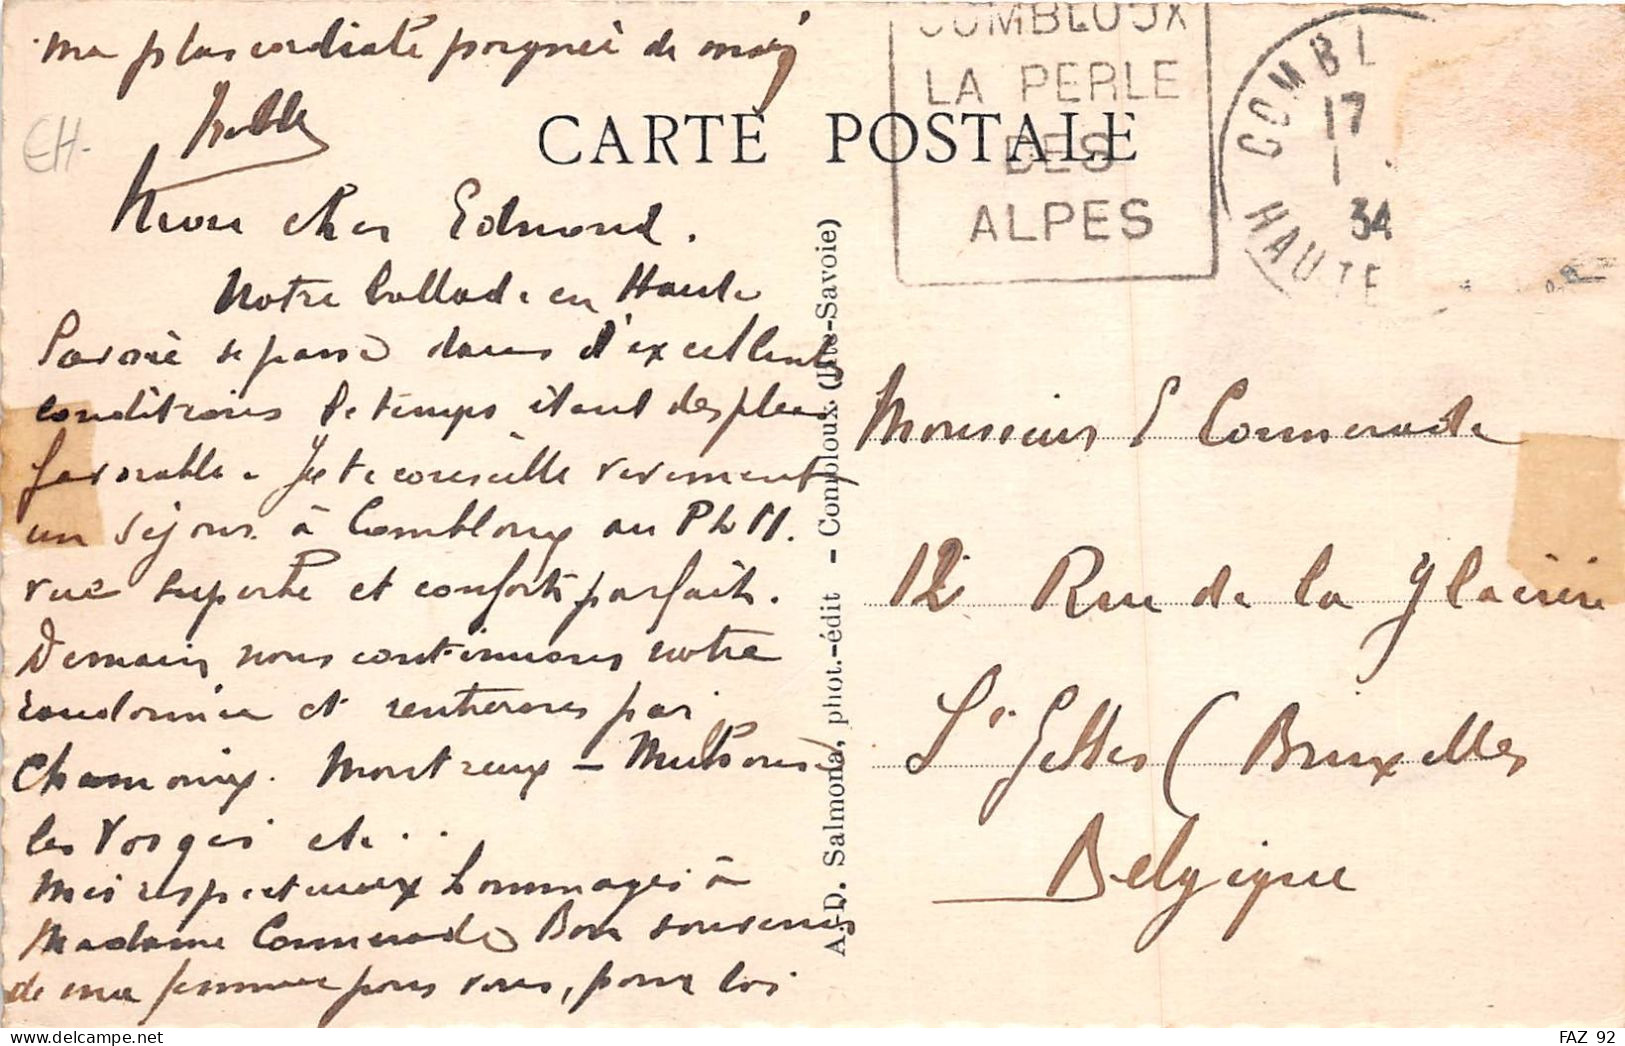 ma plus cordiale poignée de main
EH-
Mon cher Edmond.
Notre ballade en Haute
Savoie se passe dans d'excellentes
conditions le temps étant des plus
favorable. Je te conseille vivement
un séjour à Combloux au PLM.
vue superbe et confort parfait.
Demain nous continuons notre
randonnée et rentrerons par
Chamonix. Montreux - Mulhouse
les Vosges etc...
Mes respectueux hommages à
Madame Cormerade Bon souvenir
de ma femme pour vous, pour toi
CARTE POSTALE
A.-D. Salmona, phot.-édit - Combloux (Hte-Savoie)
COMBLOUX
LA PERLE
DES
ALPES
COMBL
17
1
34
HAUTE
Monsieur E Cormerade
12 Rue de la Glacière
St Gilles (Bruxelles
Belgique
FAZ 92